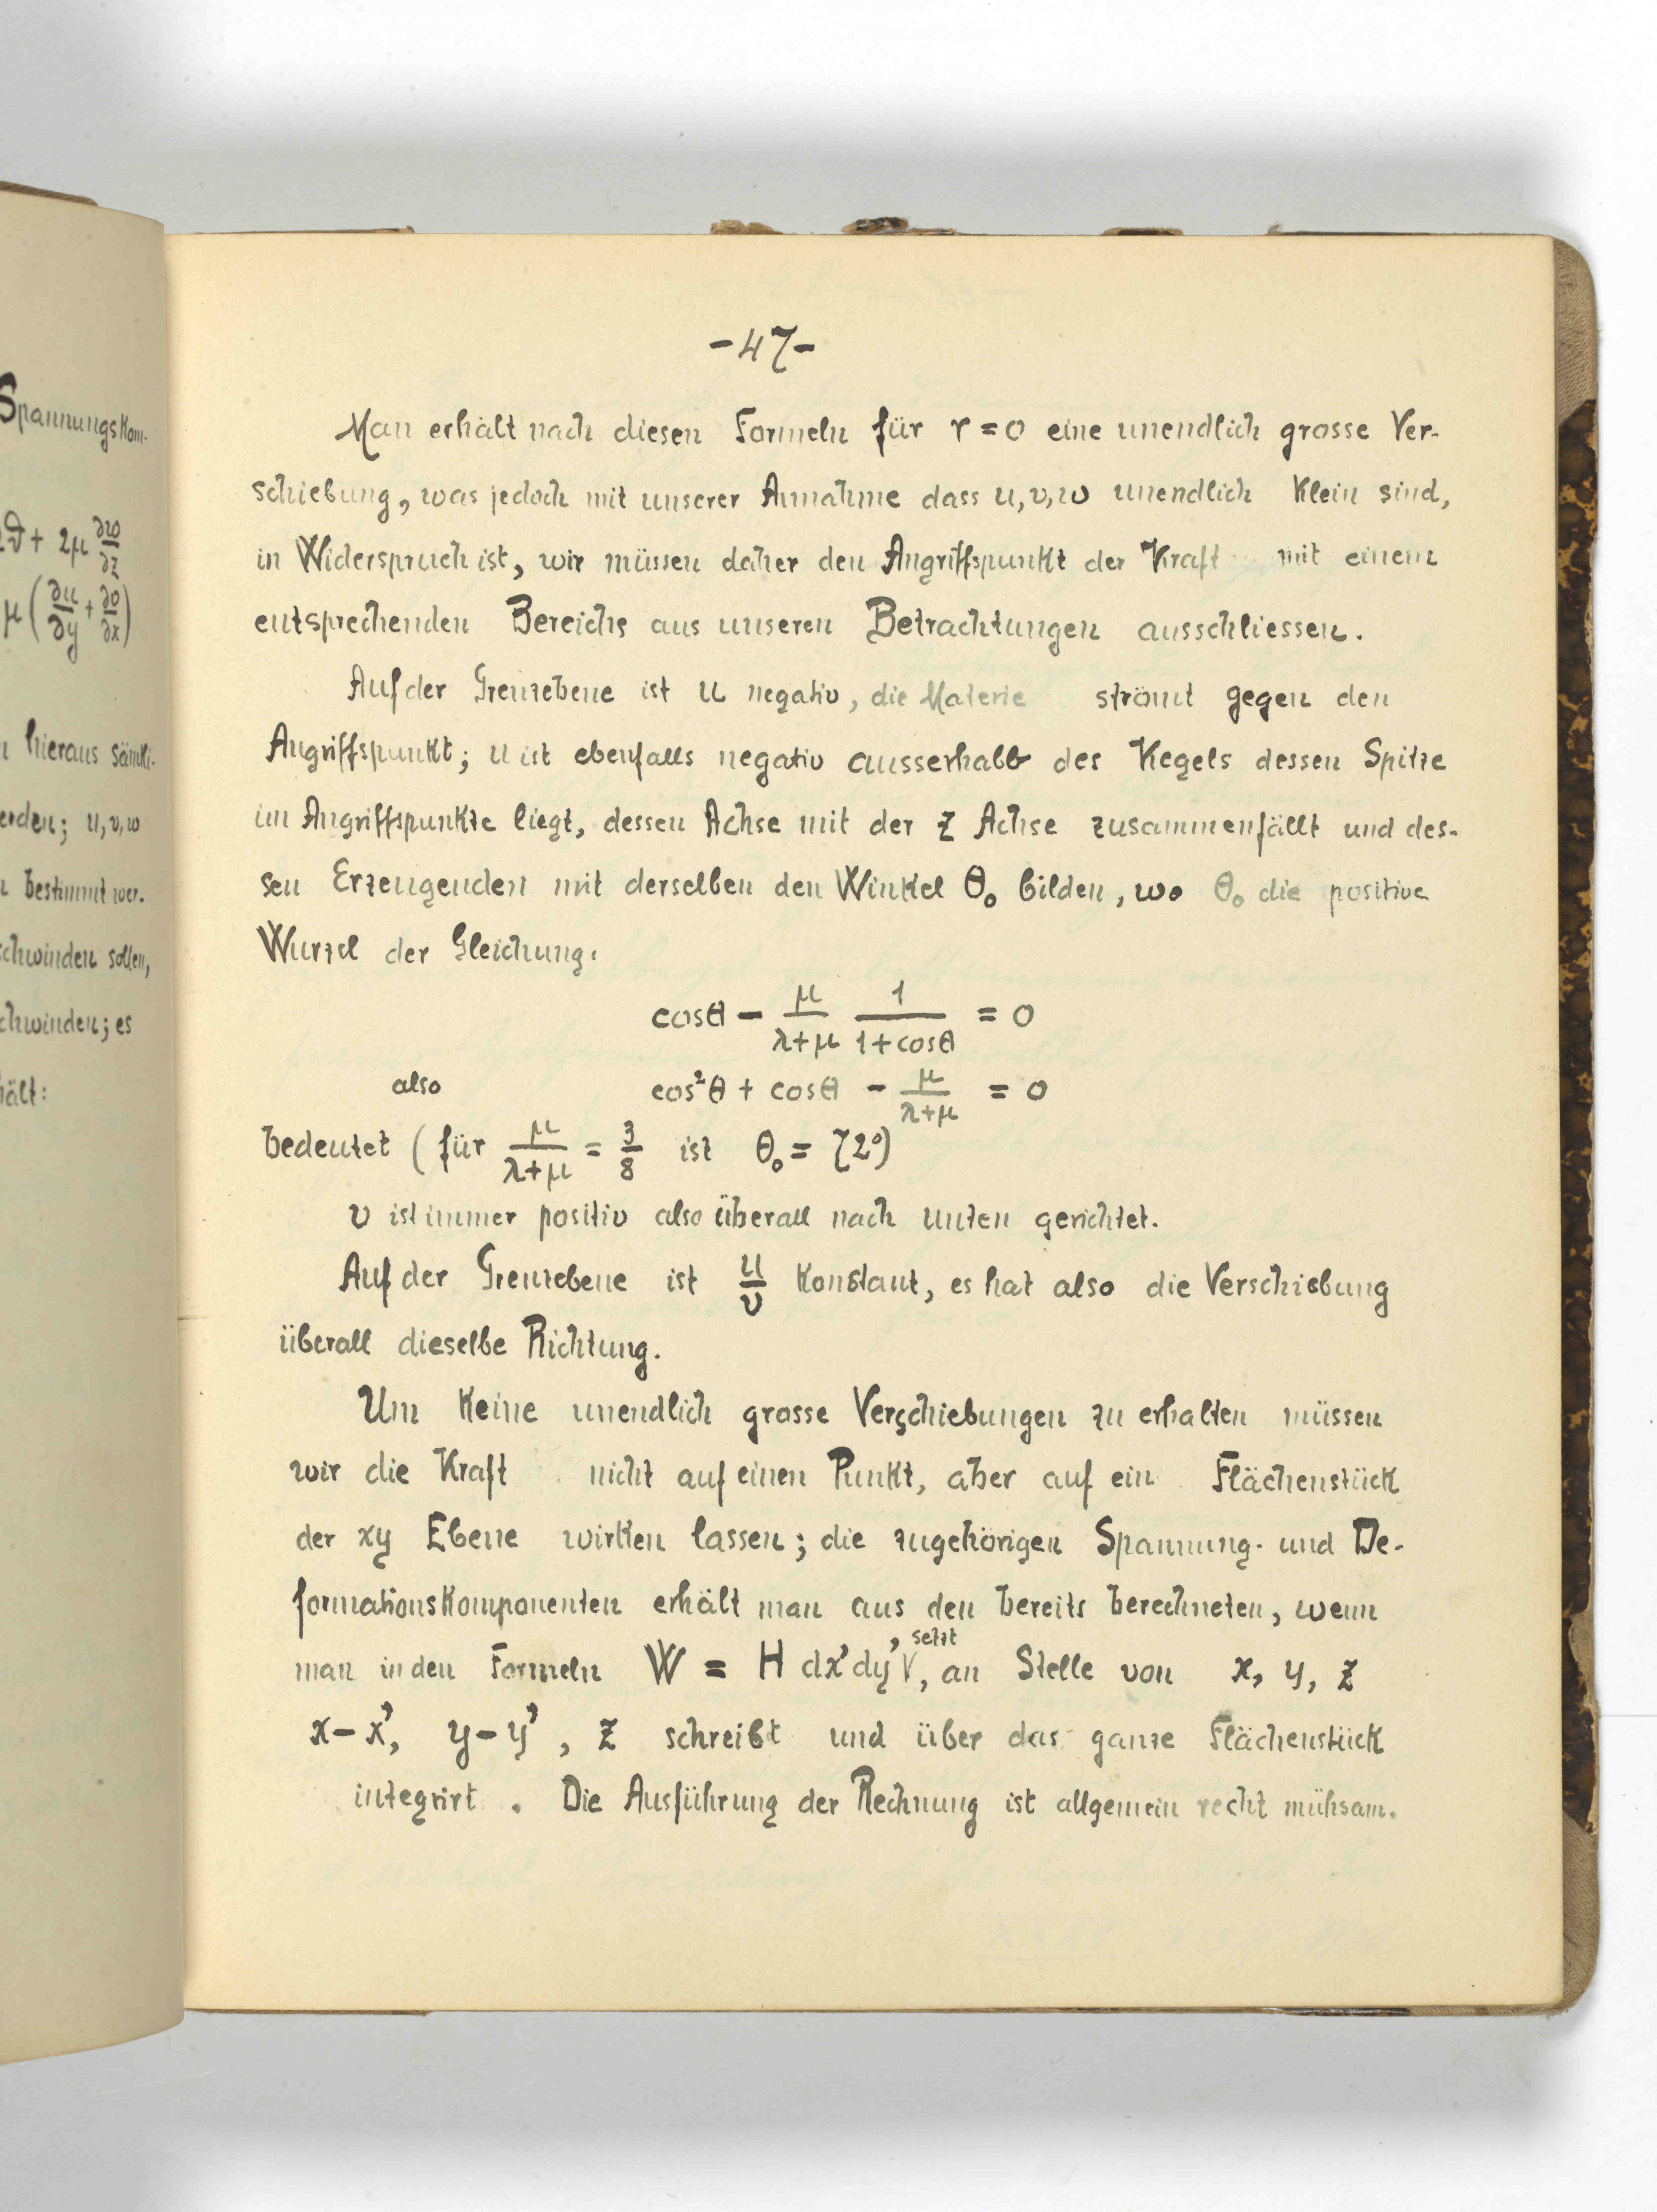 Spannungskom-
2ϑ + 2μ ∂w/∂z
μ (∂u/∂y + ∂v/∂x)
hieraus sämtli-
erden; u, v, w
bestimmt wer-
schwinden sollen,
chwinden; es
hält:
-47-
Man erhält nach diesen Formeln für r = 0 eine unendlich grosse Ver-
schiebung, was jedoch mit unserer Annahme dass u, v, w unendlich klein sind,
in Widerspruch ist, wir müssen daher den Angriffspunkt der Kraft mit einem
entsprechenden Bereichs aus unseren Betrachtungen ausschliessen.
Auf der Grenzebene ist u negativ, die Materie strömt gegen den
Angriffspunkt; u ist ebenfalls negativ ausserhalb des Kegels dessen Spitze
im Angriffspunkte liegt, dessen Achse mit der z Achse zusammenfällt und des-
sen Erzeugenden mit derselben den Winkel θ₀ bilden, wo θ₀ die positive
Wurzel der Gleichung.
cosθ - μ/(λ+μ) 1/(1+cosθ) = 0
also cos²θ + cosθ - μ/(λ+μ) = 0
bedeutet (für μ/(λ+μ) = 3/8 ist θ₀ = 72°)
v ist immer positiv also überall nach unten gerichtet.
Auf der Grenzebene ist u/v konstant, es hat also die Verschiebung
überall dieselbe Richtung.
Um keine unendlich grosse Verschiebungen zu erhalten müssen
wir die Kraft nicht auf einen Punkt, aber auf ein Flächenstück
der xy Ebene wirken lassen; die zugehörigen Spannung- und De-
formationskomponenten erhält man aus den bereits berechneten, wenn
man in den Formeln W = H dx'dy' setzt, an Stelle von x, y, z
x-x', y-y', z schreibt und über das ganze Flächenstück
integrirt. Die Ausführung der Rechnung ist allgemein recht mühsam.